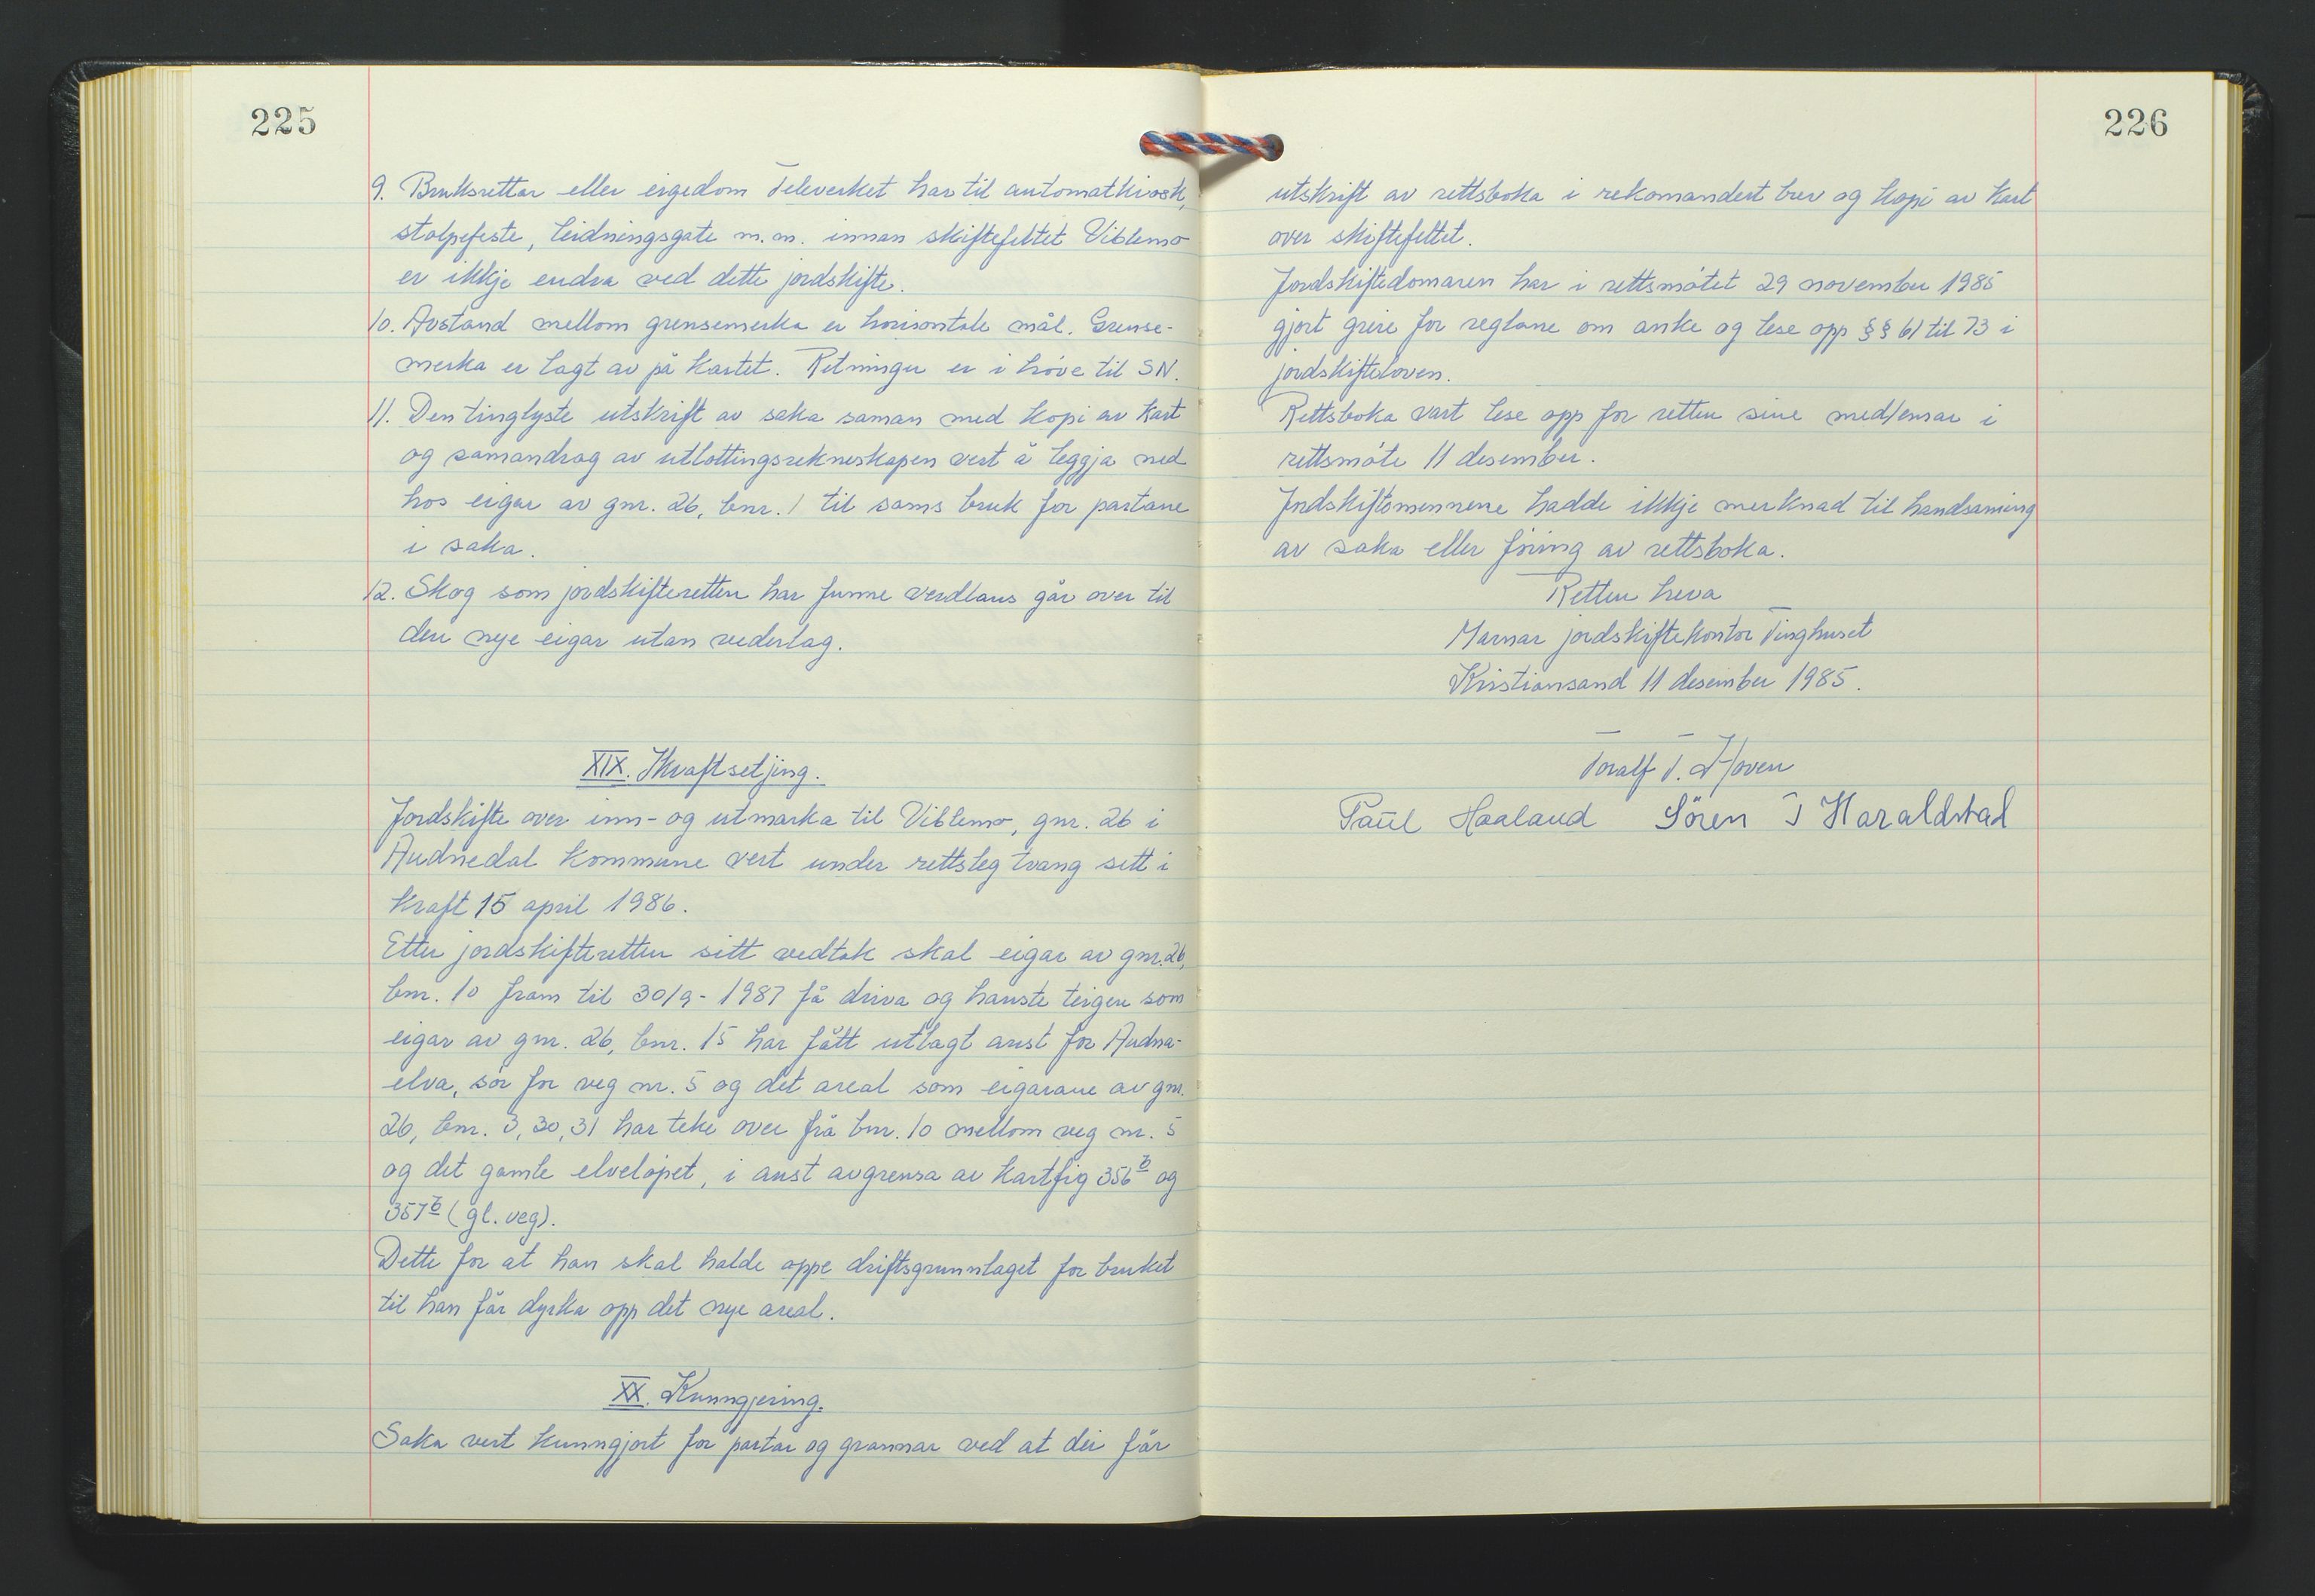 225
9. Bruksrettar eller eigedom Televerket har til automatkiosk,
stolpefeste, leidningsgate m.m. innan skiftefeltet Viblemo
er ikkje endra ved dette jordskifte.
10. Avstand mellom grensemerka er horisontale mål. Grense-
merka er lagt av på kartet. Retninger er i høve til SN.
11. Den tinglyste utskrift av saka saman med kopi av kart
og samandrag av utlottingsrekneskapen vert å leggja ned
hos eigar av gnr. 26, bnr. 1 til sams bruk for partane
i saka.
12. Skog som jordskifteretten har funne verdlaus går over til
den nye eigar utan vederlag.
XIX. Ikraftsetjing.
Jordskifte over inn- og utmarka til Viblemo, gnr. 26 i
Audnedal kommune vert under rettsleg tvang sett i
kraft 15 april 1986.
Etter jordskifteretten sitt vedtak skal eigar av gnr. 26,
bnr. 10 fram til 30/9- 1987 få driva og hauste teigen som
eigar av gnr. 26, bnr. 15 har fått utlagt aust for Audna-
elva, sør for veg nr. 5 og det areal som eigarane av gnr.
26, bnr. 3, 30, 31 har teke over frå bnr. 10 mellom veg nr. 5
og det gamle elveløpet, i aust avgrensa av kartfig 356b og
357b (gl. veg).
Dette for at han skal halde oppe driftsgrunnlaget for bruket
til han får dyrka opp det nye areal.
XX. Kunngjering.
Saka vert kunngjort for partar og grannar ved at dei får
226
utskrift av rettsboka i rekomandert brev og kopi av kart
over skiftefeltet.
Jordskiftedomaren har i rettsmøtet 29 november 1985
gjort greie for reglane om anke og lese opp §§ 61 til 73 i
jordskifteloven.
Rettsboka vart lese opp for retten sine medlemar i
rettsmøte 11 desember.
Jordskiftemennene hadde ikkje merknad til handsaming
av saka eller føring av rettsboka.
Retten heva
Marnar jordskiftekontor Tinghuset
Kristiansand 11 desember 1985.
Toralf T. Hoven
Paul Haaland Sören T Haraldstad